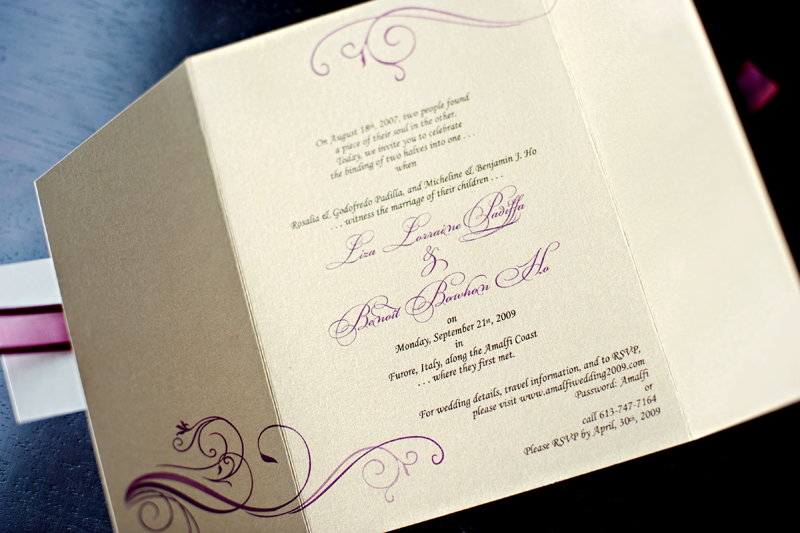 On August 18th, 2007, two people found
a piece of their soul in the other.
Today, we invite you to celebrate
the binding of two halves into one . . .
when
Rosalia & Godofredo Padilla, and Micheline & Benjamin J. Ho
. . . witness the marriage of their children . . .
Liza Lorraine Padilla
&
Benoît Bowhan Ho
on
Monday, September 21st, 2009
in
Furore, Italy, along the Amalfi Coast
. . . where they first met.
For wedding details, travel information, and to RSVP,
please visit www.amalfiwedding2009.com
Password: Amalfi
or
call 613-747-7164
Please RSVP by April, 30th, 2009